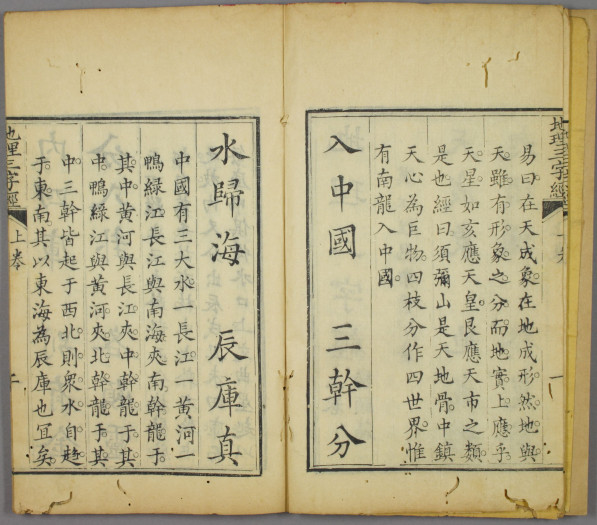 地理三字經
易曰在天成象在地成形然地與
天雖有形象之分而地實上應乎
天星如亥應天皇艮應天市之類
是也經曰須彌山是天地骨中鎮
天心為巨物四枝分作四世界惟
有南龍入中國
入中國　三幹分
水歸海　辰庫真
中國有三大水一長江一黃河一
鴨綠江長江與南海夾南幹龍于
其中黃河與長江夾中幹龍于其
中鴨綠江與黃河夾北幹龍于其
中三幹皆起于西北則衆水自趋
于東南其以東海為辰庫也宜矣
地理三字經
上卷
二